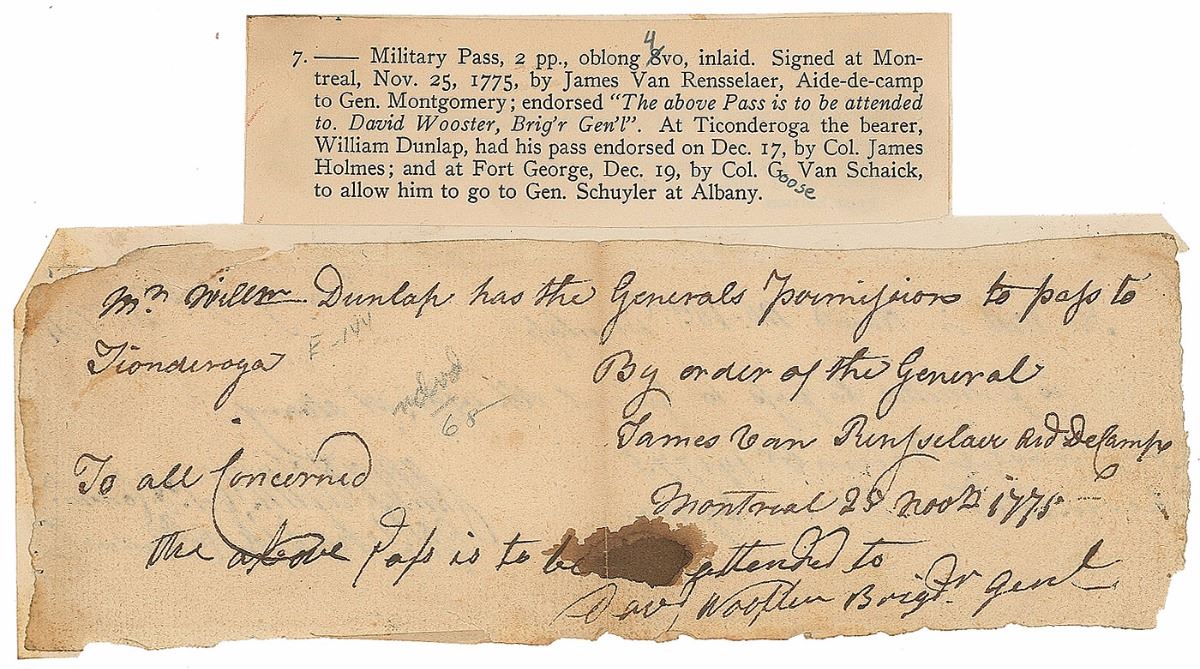 7. —— Military Pass, 2 pp., oblong 4 8vo, inlaid. Signed at Mon-
treal, Nov. 25, 1775, by James Van Rensselaer, Aide-de-camp
to Gen. Montgomery; endorsed “The above Pass is to be attended
to. David Wooster, Brig'r Gen'l”. At Ticonderoga the bearer,
William Dunlap, had his pass endorsed on Dec. 17, by Col. James
Holmes; and at Fort George, Dec. 19, by Col. Goose Van Schaick,
to allow him to go to Gen. Schuyler at Albany.
Mr. Willm Dunlap has the Generals Permission to pass to
Tionderoga
E-144
By order of the General
68
James Van Rensselaer Aid DeCamp
To all Concerned
Montrial 28 Novbr 1775
the above Pass is to be attended to
Davd Wooster Brigdr Genl